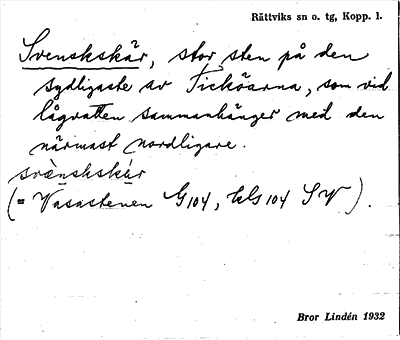 Rättviks sn o. tg, Kopp. l.
Svenskskär, stor sten på den
sydligaste av Ticköarna, som vid
lågvatten sammanhänger med den
närmast nordligare.
svènskskér
(= Vasastenen G 104, kls 104 SV).
Bror Lindén 1932